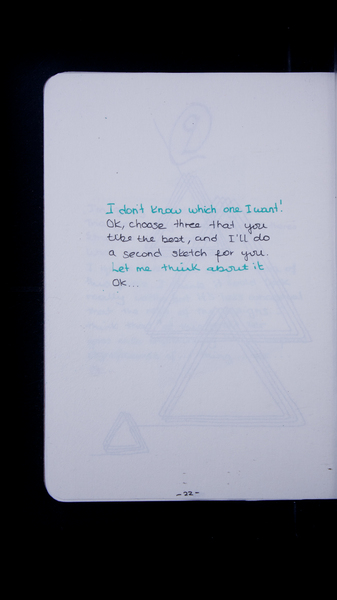 I don't know which one I want!
Ok, choose three that you
like the best, and I'll do
a second sketch for you.
Let me think about it
Ok...
-22-